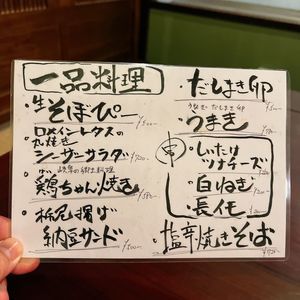 一品料理
・生そぼぴー
・ロメインレタスの
丸焼き
シーザーサラダ
岐阜の郷土料理
・鶏ちゃん焼き
・栃尾揚げ
納豆サンド
・だしまき卵
うなぎ・だしまき卵
・うまき
串
・しいたけ
ツナチーズ
・白ねぎ
・長イモ
・塩辛焼きそば